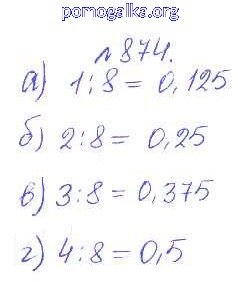 pomogalka.org
№874.
а) 1:8 = 0,125
б) 2:8 = 0,25
в) 3:8 = 0,375
г) 4:8 = 0,5